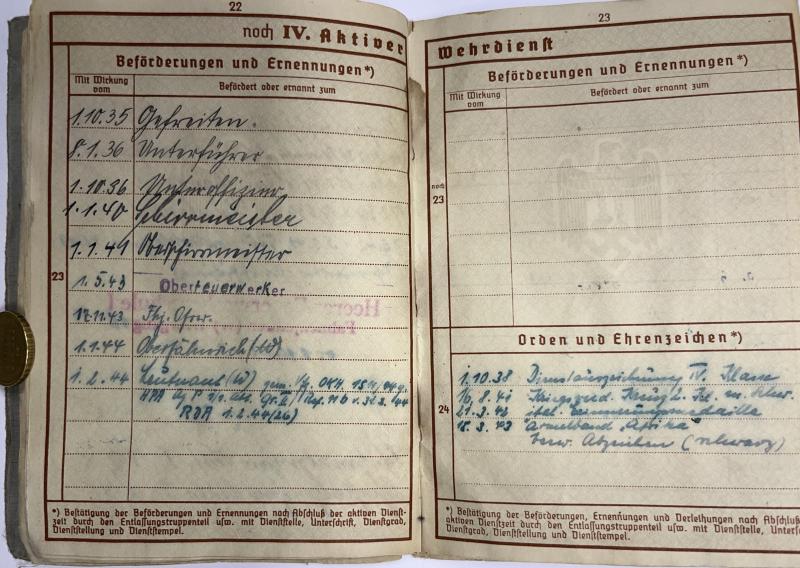 22
noch IV. Aktiver
Beförderungen und Ernennungen*)
Mit Wirkung vom
Befördert oder ernannt zum
1.10.35 Gefreiten.
8.1.36 Unterführer
1.10.36 Unteroffizier
1.1.40 Schirrmeister
1.1.41 Oberschirrmeister
23
1.5.43 Oberfeuerwerker
17.11.43 Fhj. Ofw.
1.1.44 Oberfähnrich (W)
1.2.44 Leutnant (W) gem.
RDA 1.2.44 (26)
*) Bestätigung der Beförderungen und Ernennungen nach Abschluß der aktiven Dienst-
zeit durch den Entlassungstruppenteil usw. mit Dienststelle, Unterschrift, Dienstgrad,
Dienststellung und Dienststempel.
23
Wehrdienst
Beförderungen und Ernennungen*)
Mit Wirkung vom
Befördert oder ernannt zum
noch
23
Orden und Ehrenzeichen*)
1.10.38 Dienstauszeichnung IV. Klasse
16.8.41 Kriegsverd. Kreuz 2. Kl. m. Schw.
24
21.3.42 ital. Erinnerungsmedaille
18.3.43 Ärmelband "Afrika"
Verw. Abzeichen (schwarz)
*) Bestätigung der Beförderungen, Ernennungen und Verleihungen nach Abschluß
aktiven Dienstzeit durch den Entlassungstruppenteil usw. mit Dienststelle, Unterschr
Dienstgrad, Dienststellung und Dienststempel.